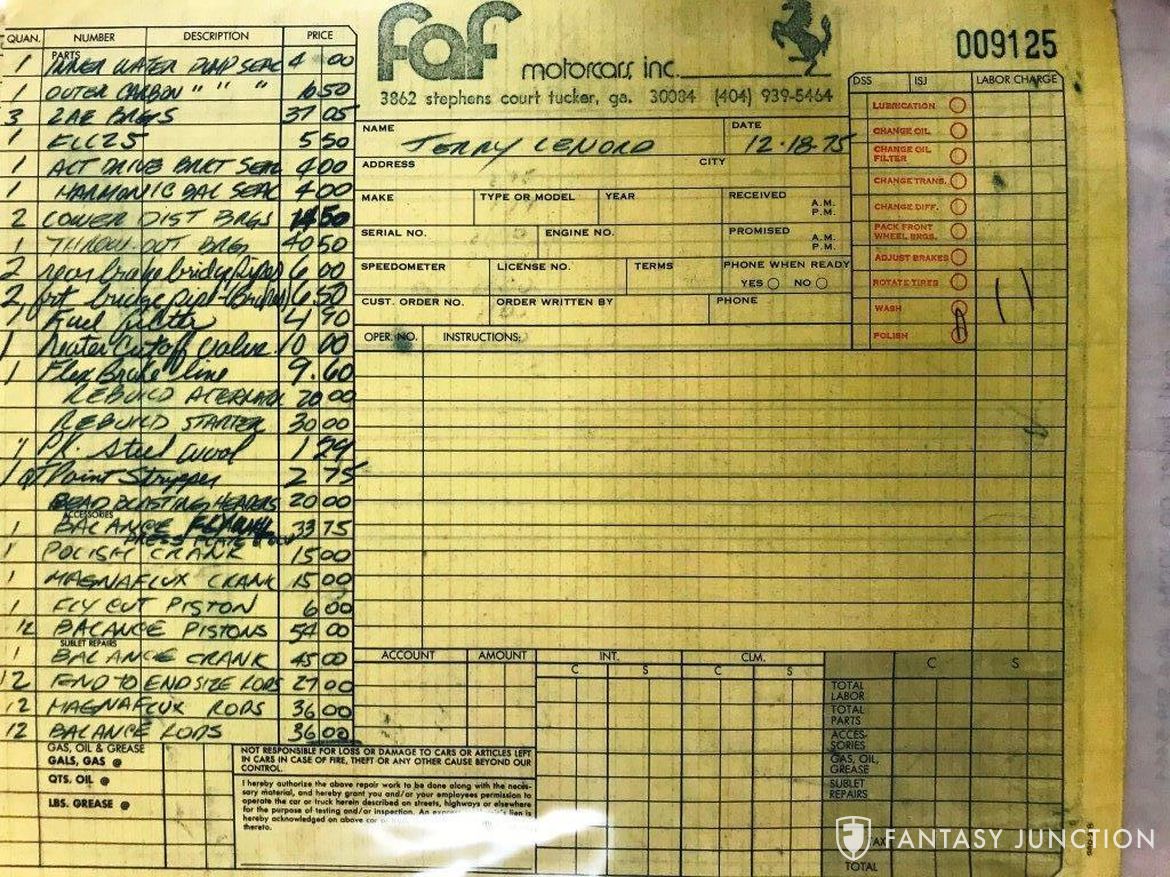 faf motorcars inc.
3862 stephens court tucker, ga. 30084 (404) 939-5464
009125
QUAN. NUMBER DESCRIPTION PRICE
PARTS
1 INNER WATER PUMP SEAL 4 00
1 OUTER CARBON " " " 16 50
3 2AE BRGS 37 05
1 ELL25 5 50
1 ALT DRIVE BRKT SEAL 4 00
1 HARMONIC BAL SEAL 4 00
2 LOWER DIST BRGS 50
1 THROW-OUT BRG 40 50
2 rear brake bridge pipes 6 00
2 frt bridge pipe 6 50
Fuel filter 4 90
1 heater cutoff valve 10 00
1 Flex Brake line 9.60
REBUILD ALTERNATOR 20 00
REBUILD STARTER 30 00
1 Pk. Steel wool 1 29
1 Qt Paint Stripper 2 75
BEAD BLASTING HEADERS 20 00
ACCESSORIES
1 BALANCE 33 75
PRESS PLATE
1 POLISH CRANK 15 00
1 MAGNAFLUX CRANK 15 00
1 FLY CUT PISTON 6 00
12 BALANCE PISTONS 54 00
SUBLET REPAIRS
1 BALANCE CRANK 45 00
12 END TO END SIZE RODS 27 00
12 MAGNAFLUX RODS 36 00
12 BALANCE RODS 36 00
GAS, OIL & GREASE
GALS, GAS @
QTS. OIL @
LBS. GREASE @
NAME TERRY LENORD DATE 12-18-75
ADDRESS CITY
MAKE TYPE OR MODEL YEAR RECEIVED A.M. P.M.
SERIAL NO. ENGINE NO. PROMISED A.M. P.M.
SPEEDOMETER LICENSE NO. TERMS PHONE WHEN READY
YES NO
CUST. ORDER NO. ORDER WRITTEN BY PHONE
OPER. NO. INSTRUCTIONS:
DSS ISJ LABOR CHARGE
LUBRICATION
CHANGE OIL
CHANGE OIL FILTER
CHANGE TRANS.
CHANGE DIFF.
PACK FRONT WHEEL BRGS.
ADJUST BRAKES
ROTATE TIRES
WASH
POLISH
ACCOUNT AMOUNT INT. CLM.
C S C S C S
TOTAL LABOR
TOTAL PARTS
ACCESSORIES
GAS, OIL, GREASE
SUBLET REPAIRS
TAX
TOTAL
NOT RESPONSIBLE FOR LOSS OR DAMAGE TO CARS OR ARTICLES LEFT
IN CARS IN CASE OF FIRE, THEFT OR ANY OTHER CAUSE BEYOND OUR
CONTROL.
I hereby authorize the above repair work to be done along with the neces-
sary material, and hereby grant you and/or your employees permission to
operate the car or truck herein described on streets, highways or elsewhere
for the purpose of testing and/or inspection. An express lien is
hereby acknowledged on above car
thereto.
FANTASY JUNCTION